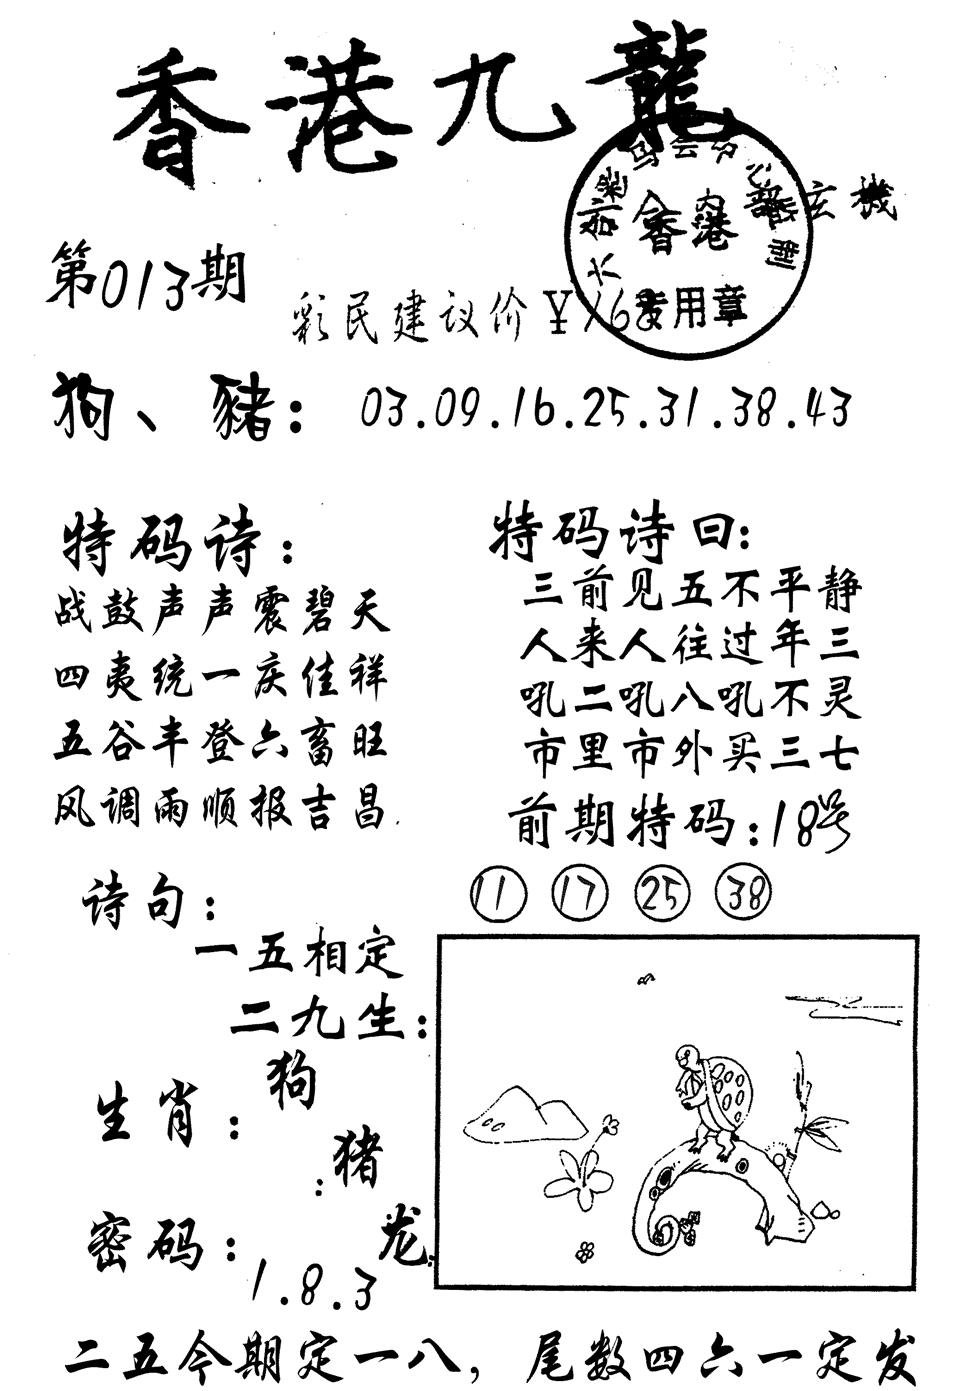 香港九龍
玄機
香港
专用章
第013期
彩民建议价¥168
狗、豬：03.09.16.25.31.38.43
特码诗：
战鼓声声震碧天
四夷统一庆佳祥
五谷丰登六畜旺
风调雨顺报吉昌.
特码诗曰：
三前见五不平静
人来人往过年三
吼二吼八吼不灵
市里市外买三七
前期特码：18号
11 17 25 38
诗句：
一五相定
二九生：
生肖：
狗
：猪
龙：
密码：
1.8.3
二五今期定一八，尾数四六一定发